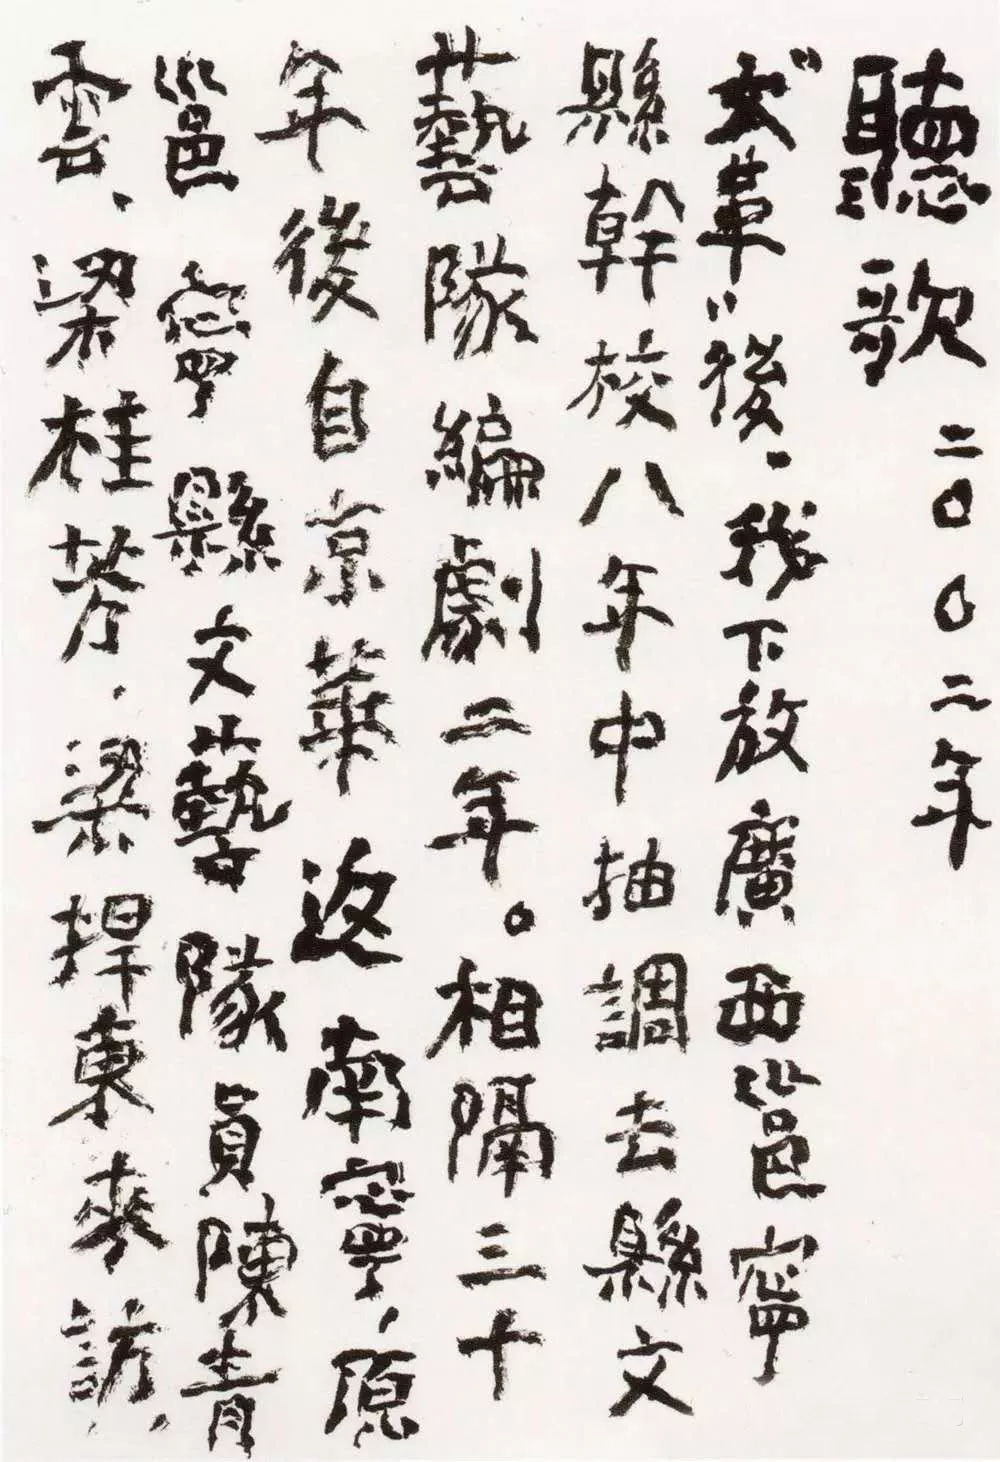 聽歌 二〇〇二年
"文革"後，我下放廣西邕寧
縣幹校八年中抽調去縣文
藝隊編劇二年。相隔三十
年後自京華返南寧，原
邕寧縣文藝隊員陳青
雲、梁桂芳、梁捍東來訪，